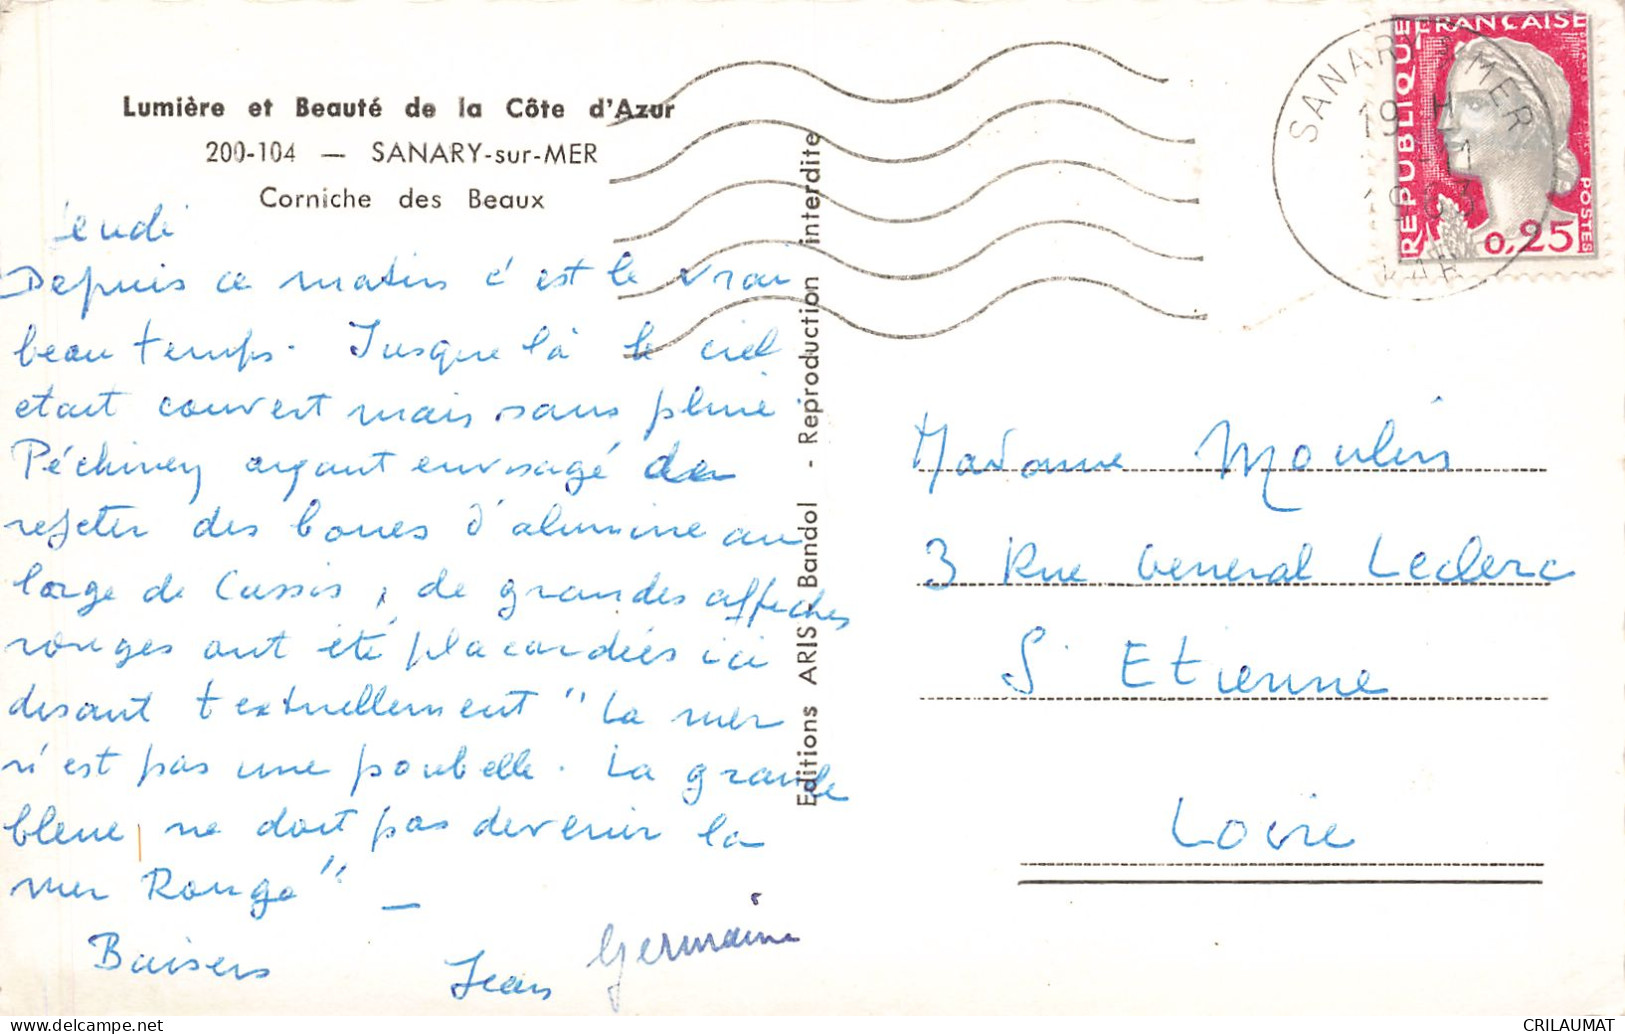 Lumière et Beauté de la Côte d'Azur
200-104 — SANARY-sur-MER
Corniche des Beaux
jeudi
Depuis ce matin c'est le vrai
beau temps. Jusque là le ciel
etait couvert mais sans pluie.
Péchiney ayant envisagé de
rejeter des boues d'alumine au
large de Cassis, de grandes affiches
rouges ont été placardées ici
disant textuellement "La mer
n'est pas une poubelle. La grande
bleue, ne doit pas devenir la
mer Rouge" —
Baisers Jean Germaine
Editions ARIS Bandol - Reproduction interdite
REPUBLIQUE FRANÇAISE
POSTES
0,25
SANARY S MER
19 H
VAR
Madame Moulin
3 Rue General Leclerc
St Etienne
Loire
CRILAUMAT
delcampe.net